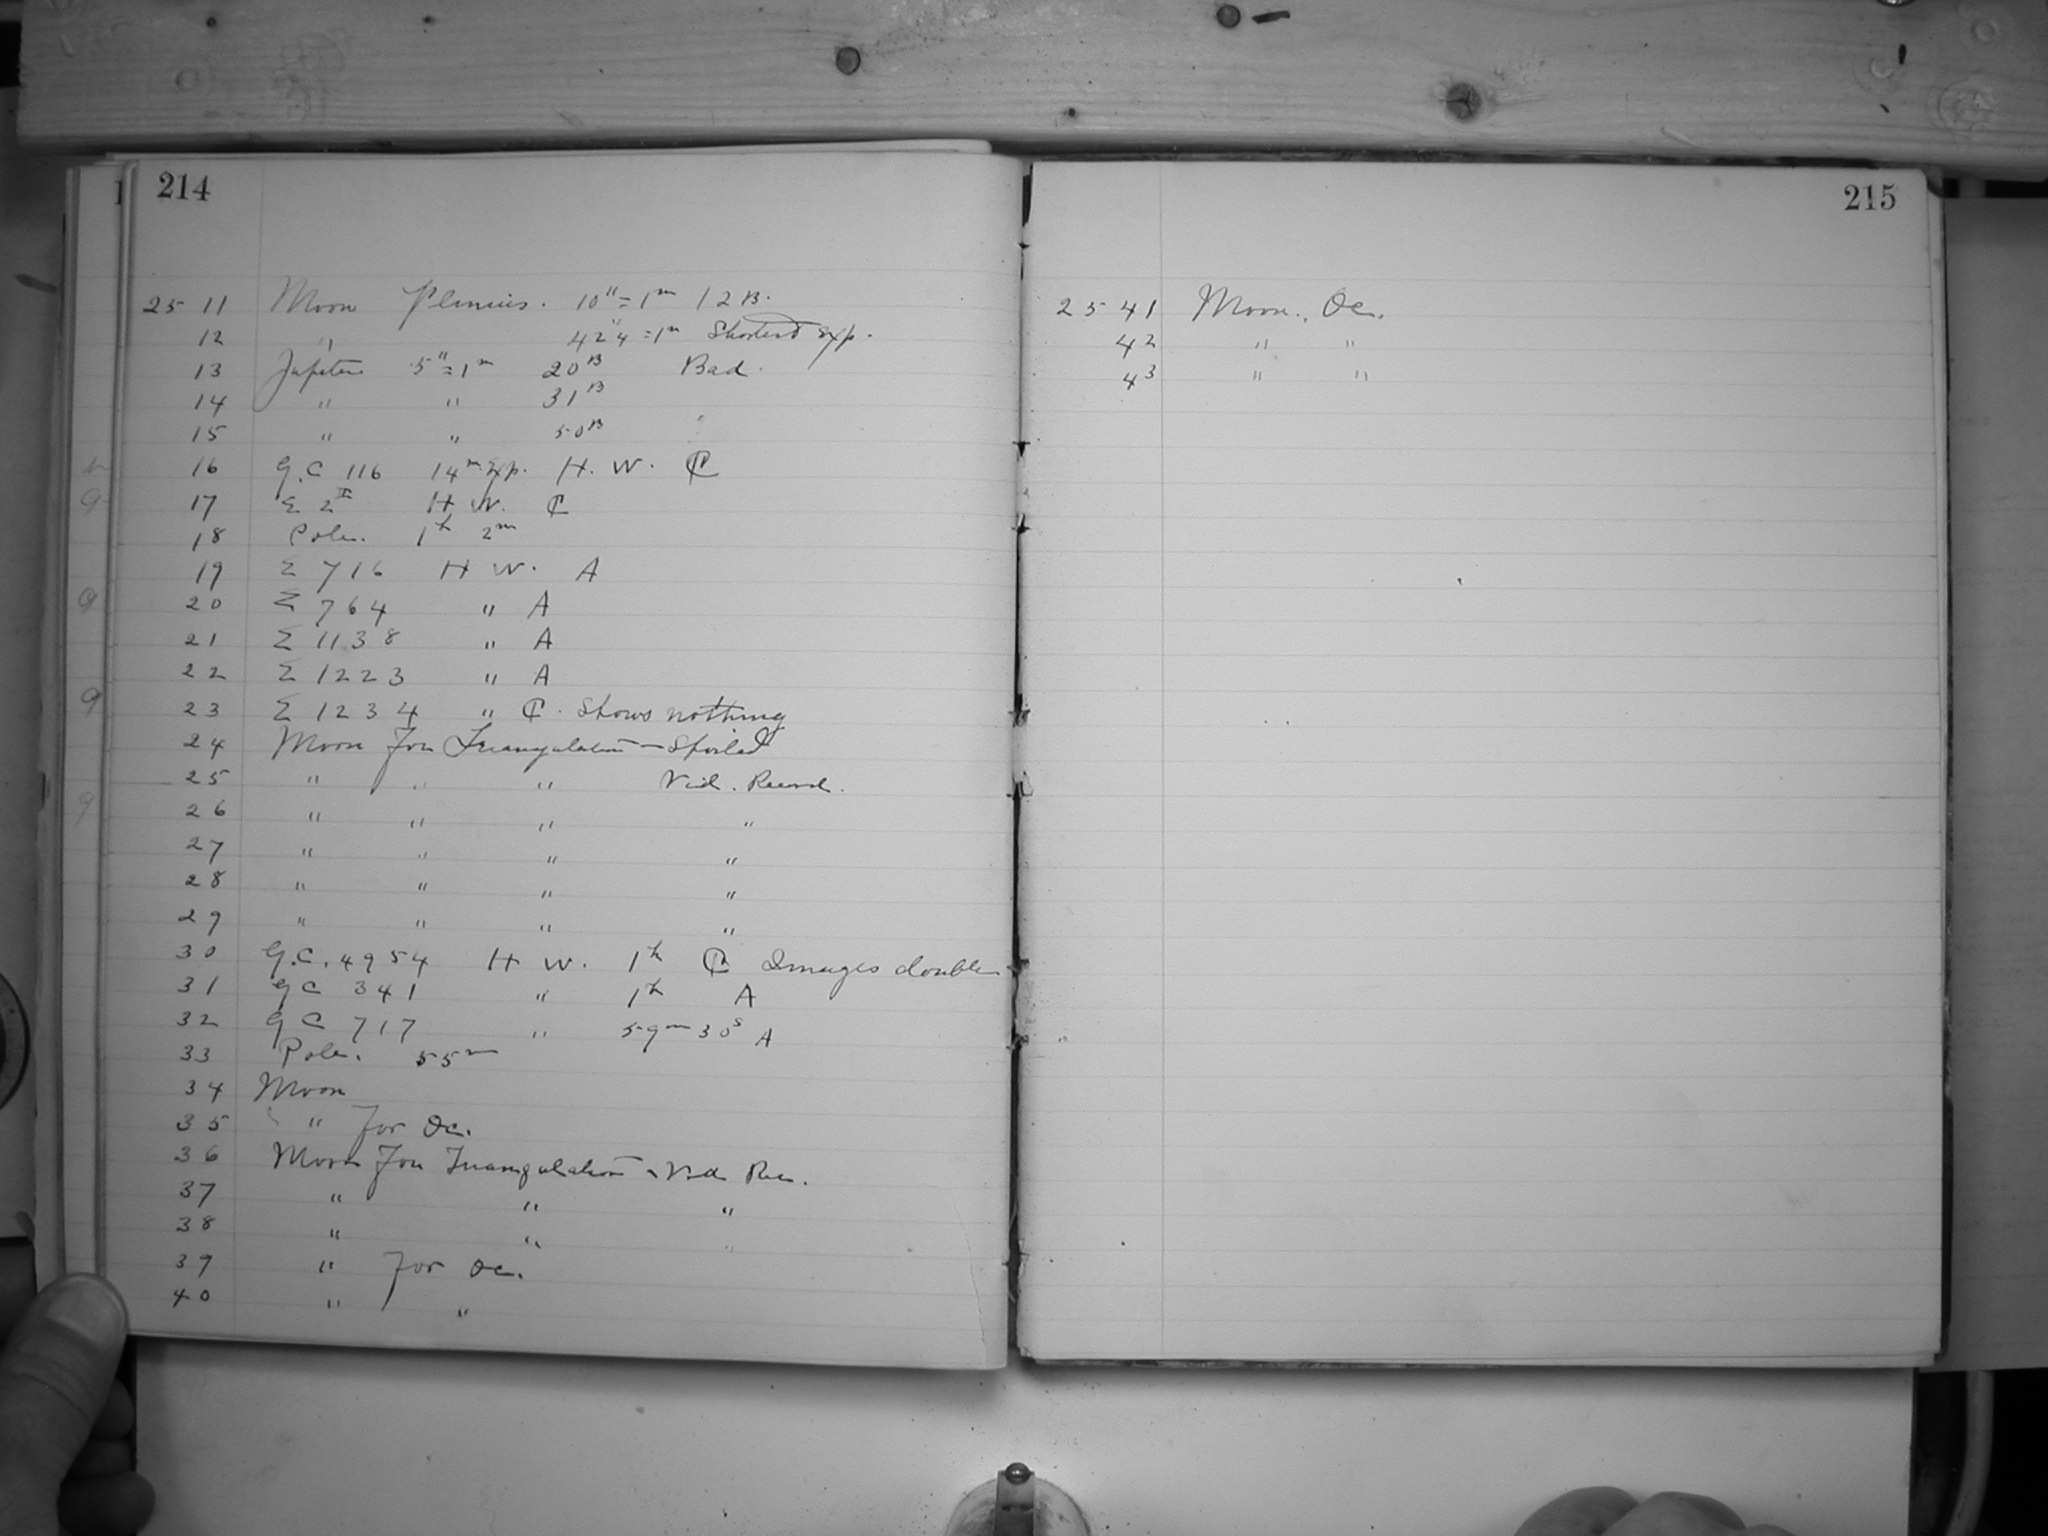 214
25 11 Moon Plinius. 10"=1m 12B.
12 " 42"4=1m Shortest Exp.
13 Jupiter 5"=1m 20B Bad.
14 " " 31B
15 " " 50B "
16 G.C 116 14m Exp. H. W. ₵
17 Σ 2II H W. ₵
18 Pole. 1h 2m
19 Σ 716 H W. A
20 Σ 764 " A
21 Σ 1138 " A
22 Σ 1223 " A
23 Σ 1234 " ₵. Shows nothing
24 Moon For Triangulation — Spoiled
25 " " " Vid. Record.
26 " " " "
27 " " " "
28 " " " "
29 " " " "
30 G.C. 4954 H W. 1h ₵ Images double
31 GC 341 " 1h A
32 GC 717 " 59m 30s A
33 Pole. 55m
34 Moon
35 " For Oc.
36 Moon For Triangulation - Vid Rec.
37 " " "
38 " " "
39 " For Oc.
40 " "
215
25 41 Moon. Oc.
42 " "
43 " "